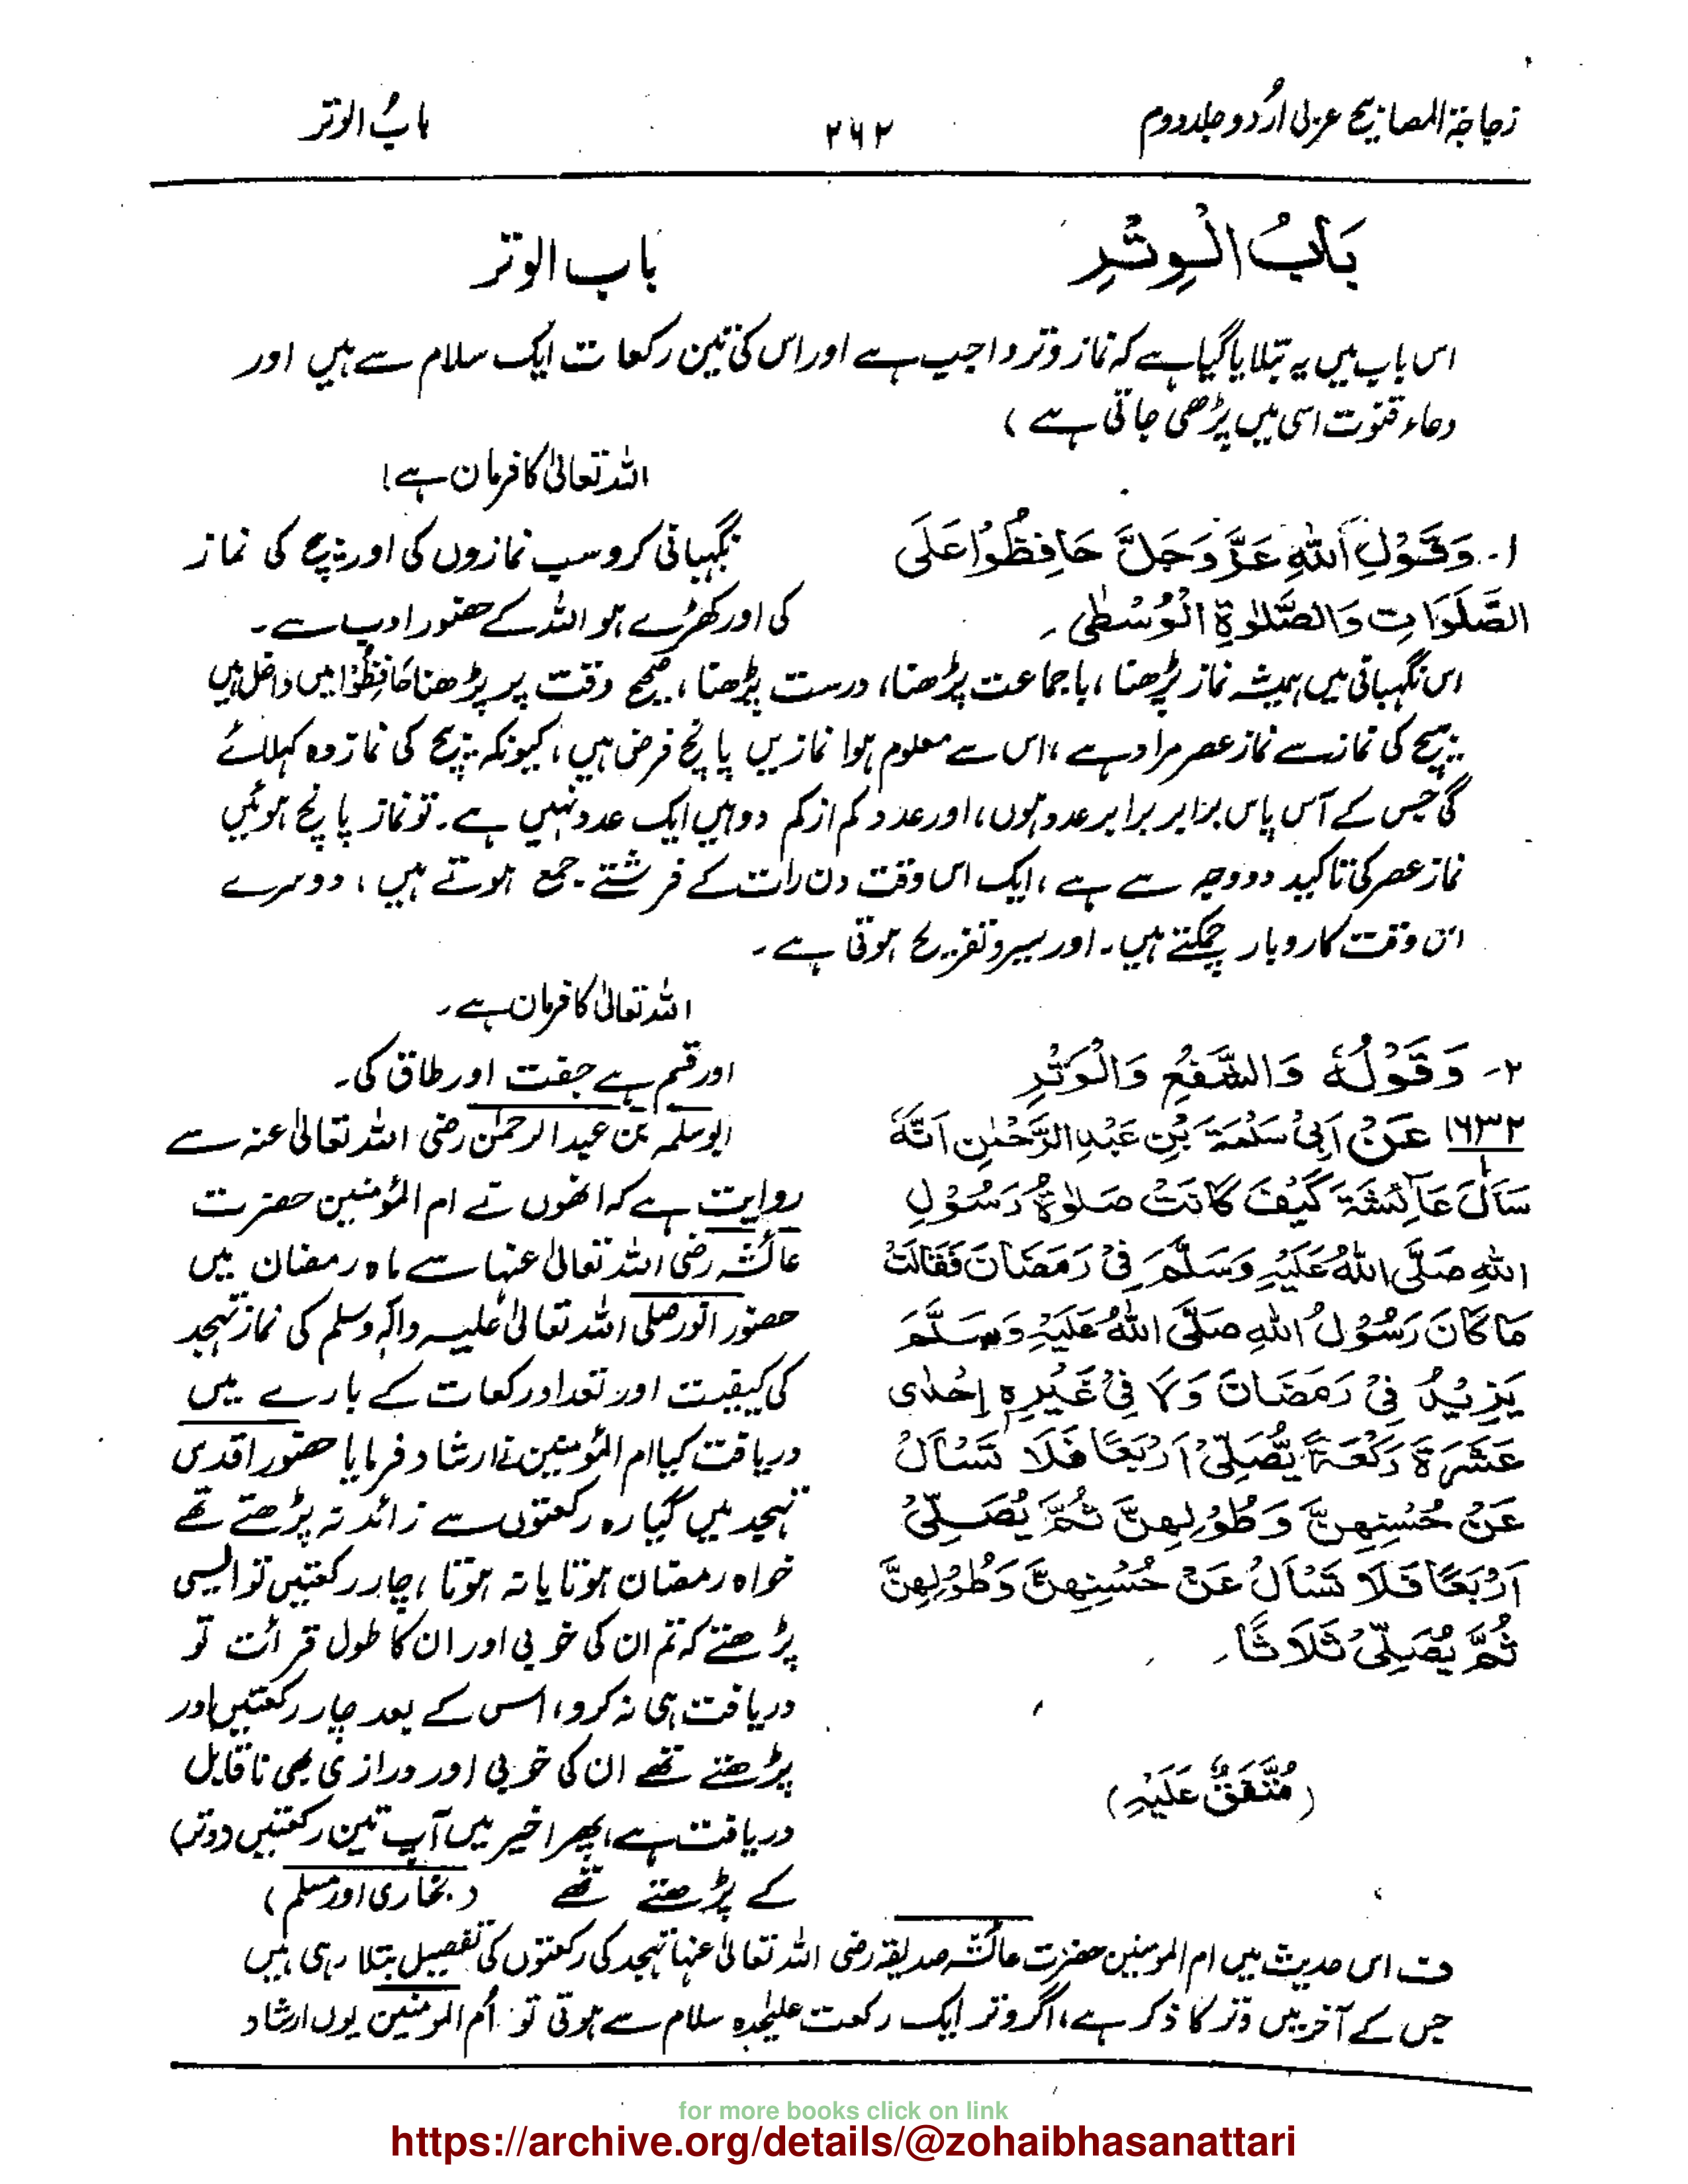 زجاجۃ المصابیح عربی اُردو جلد دوم
۲۶۲
بابُ الوتر
بَابُ الْوِتْرِ
باب الوتر
اس باب میں یہ بتلایا گیا ہے کہ نماز وتر واجب ہے اور اس کی تین رکعات ایک سلام سے ہیں اور
دعاء قنوت اسی میں پڑھی جاتی ہے )
اللہ تعالیٰ کا فرمان ہے!
۱- وَقَوْلِ اللّٰهِ عَزَّ وَجَلَّ حَافِظُوْا عَلَى
الصَّلَوَاتِ وَالصَّلٰوةِ الْوُسْطٰى ۔
نگہبانی کرو سب نمازوں کی اور بیچ کی نماز
کی اور کھڑے ہو اللہ کے حضور ادب سے ۔
اس نگہبانی میں ہمیشہ نماز پڑھنا، باجماعت پڑھنا، درست پڑھنا، صحیح وقت پر پڑھنا حَافِظُوْا میں داخل ہیں
بیچ کی نماز سے نماز عصر مراد ہے، اس سے معلوم ہوا نمازیں پانچ فرض ہیں، کیونکہ بیچ کی نماز وہ کہلائے
گی جس کے آس پاس برابر برابر عدد ہوں، اور عدد کم از کم دو ہیں ایک عدد نہیں ہے۔ تو نماز پانچ ہوئیں
نماز عصر کی تاکید دو وجہ سے ہے، ایک اس وقت دن رات کے فرشتے جمع ہوتے ہیں، دوسرے
اس وقت کاروبار چمکتے ہیں۔ اور سیر و تفریح ہوتی ہے ۔
اللہ تعالیٰ کا فرمان ہے ۔
۲- وَقَوْلُهٗ وَالشَّفْعِ وَالْوَتْرِ
اور قسم ہے جفت اور طاق کی۔
۱۶۳۲ عَنْ اَبِیْ سَلْمَةَ بْنِ عَبْدِ الرَّحْمٰنِ اَنَّهٗ
سَأَلَ عَآئِشَةَ كَيْفَ كَانَتْ صَلٰوةُ رَسُوْلِ
اللّٰهِ صَلَّى اللّٰهُ عَلَيْهِ وَسَلَّمَ فِیْ رَمَضَانَ فَقَالَتْ
مَا كَانَ رَسُوْلُ اللّٰهِ صَلَّى اللّٰهُ عَلَيْهِ وَسَلَّمَ
يَزِيْدُ فِیْ رَمَضَانَ وَلَا فِیْ غَيْرِهٖ اِحْدٰى
عَشَرَةَ رَكْعَةً يُّصَلِّیْ اَرْبَعًا فَلَا تَسْأَلْ
عَنْ حُسْنِهِنَّ وَطُوْلِهِنَّ ثُمَّ يُصَلِّیْ
اَرْبَعًا فَلَا تَسْأَلْ عَنْ حُسْنِهِنَّ وَطُوْلِهِنَّ
ثُمَّ يُصَلِّیْ ثَلَاثًا ۔
(مُتَّفَقٌ عَلَيْهِ)
ابو سلمہ بن عبدالرحمٰن رضی اللہ تعالیٰ عنہ سے
روایت ہے کہ انھوں نے ام المؤمنین حضرت
عائشہ رضی اللہ تعالیٰ عنہا سے ماہ رمضان میں
حضور انور صلی اللہ تعالیٰ علیہ وآلہ وسلم کی نماز تہجد
کی کیفیت اور تعداد رکعات کے بارے میں
دریافت کیا ام المؤمنین نے ارشاد فرمایا حضور اقدس
تہجد میں گیارہ رکعتوں سے زائد نہ پڑھتے تھے
خواہ رمضان ہوتا یا نہ ہوتا، چار رکعتیں تو ایسی
پڑھتے کہ تم ان کی خوبی اور ان کا طول قرائت تو
دریافت ہی نہ کرو، اس کے بعد چار رکعتیں اور
پڑھتے تھے ان کی خوبی اور درازی بھی ناقابل
دریافت ہے، پھر اخیر میں آپ تین رکعتیں (وتر)
کے پڑھتے تھے (بخاری اور مسلم)
ف اس حدیث میں ام المومنین حضرت عائشہ صدیقہ رضی اللہ تعالیٰ عنہا تہجد کی رکعتوں کی تفصیل بتلا رہی ہیں
جس کے آخر میں وتر کا ذکر ہے، اگر وتر ایک رکعت علیٰحدہ سلام سے ہوتی تو اُم المومنین یوں ارشاد
for more books click on link
https://archive.org/details/@zohaibhasanattari